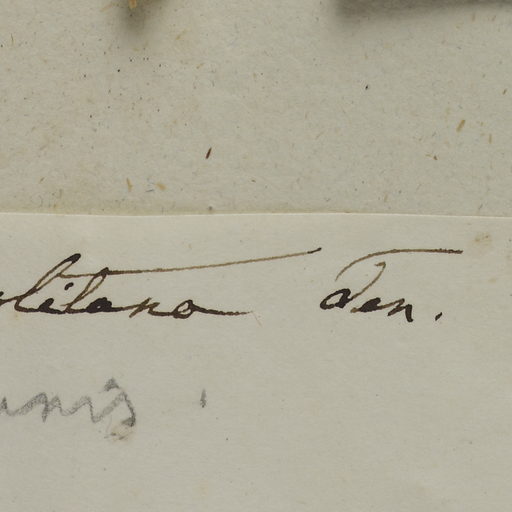 olitano Ten.
unis.